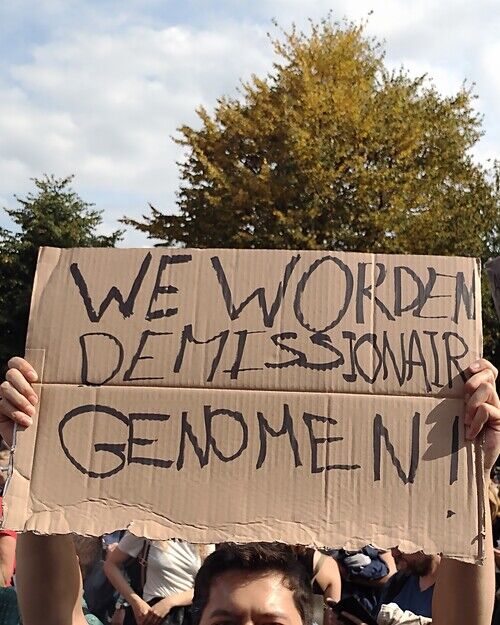 WE WORDEN
DEMISSIONAIR
GENOMEN!